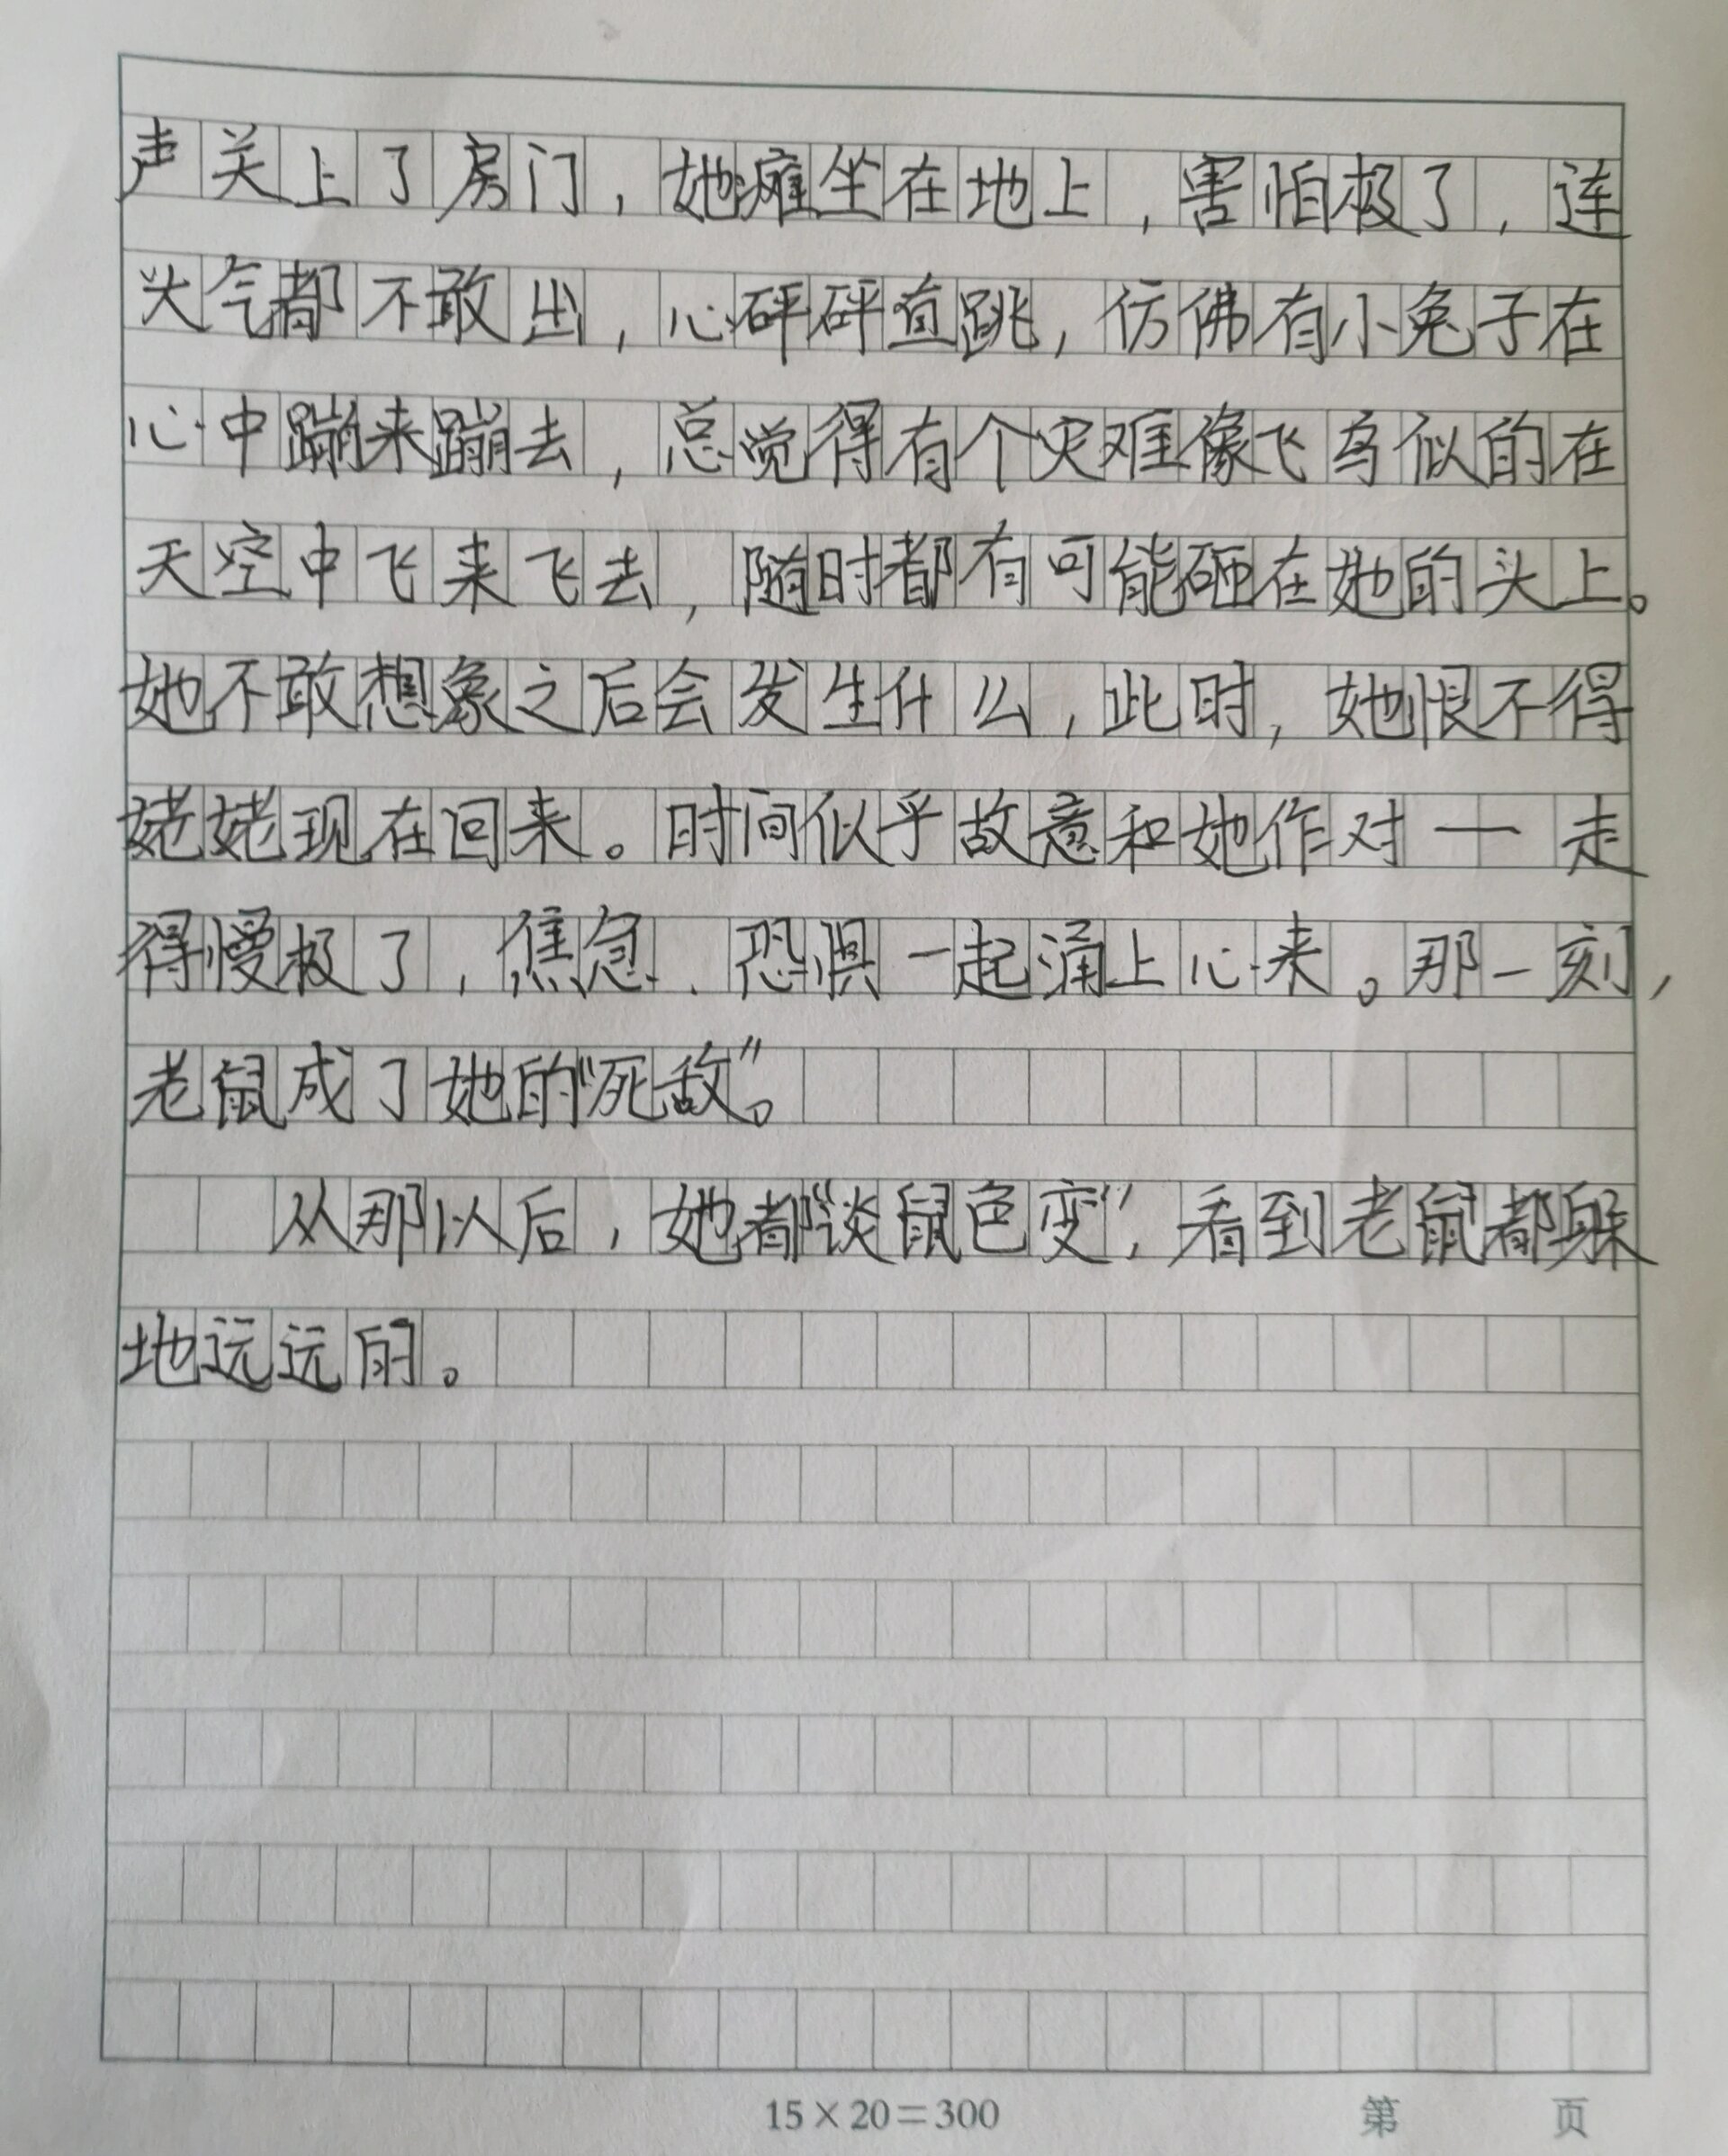 声关上了房门，她瘫坐在地上，害怕极了，连
大气都不敢出，心砰砰直跳，仿佛有小兔子在
心中蹦来蹦去，总觉得有个灾难像飞鸟似的在
天空中飞来飞去，随时都有可能砸在她的头上。
她不敢想象之后会发生什么，此时，她恨不得
姥姥现在回来。时间似乎故意和她作对——走
得慢极了，焦急、恐惧一起涌上心来。那一刻，
老鼠成了她的“死敌”。
从那以后，她都“谈鼠色变”，看到老鼠都躲
地远远的。
15×20=300 第 页